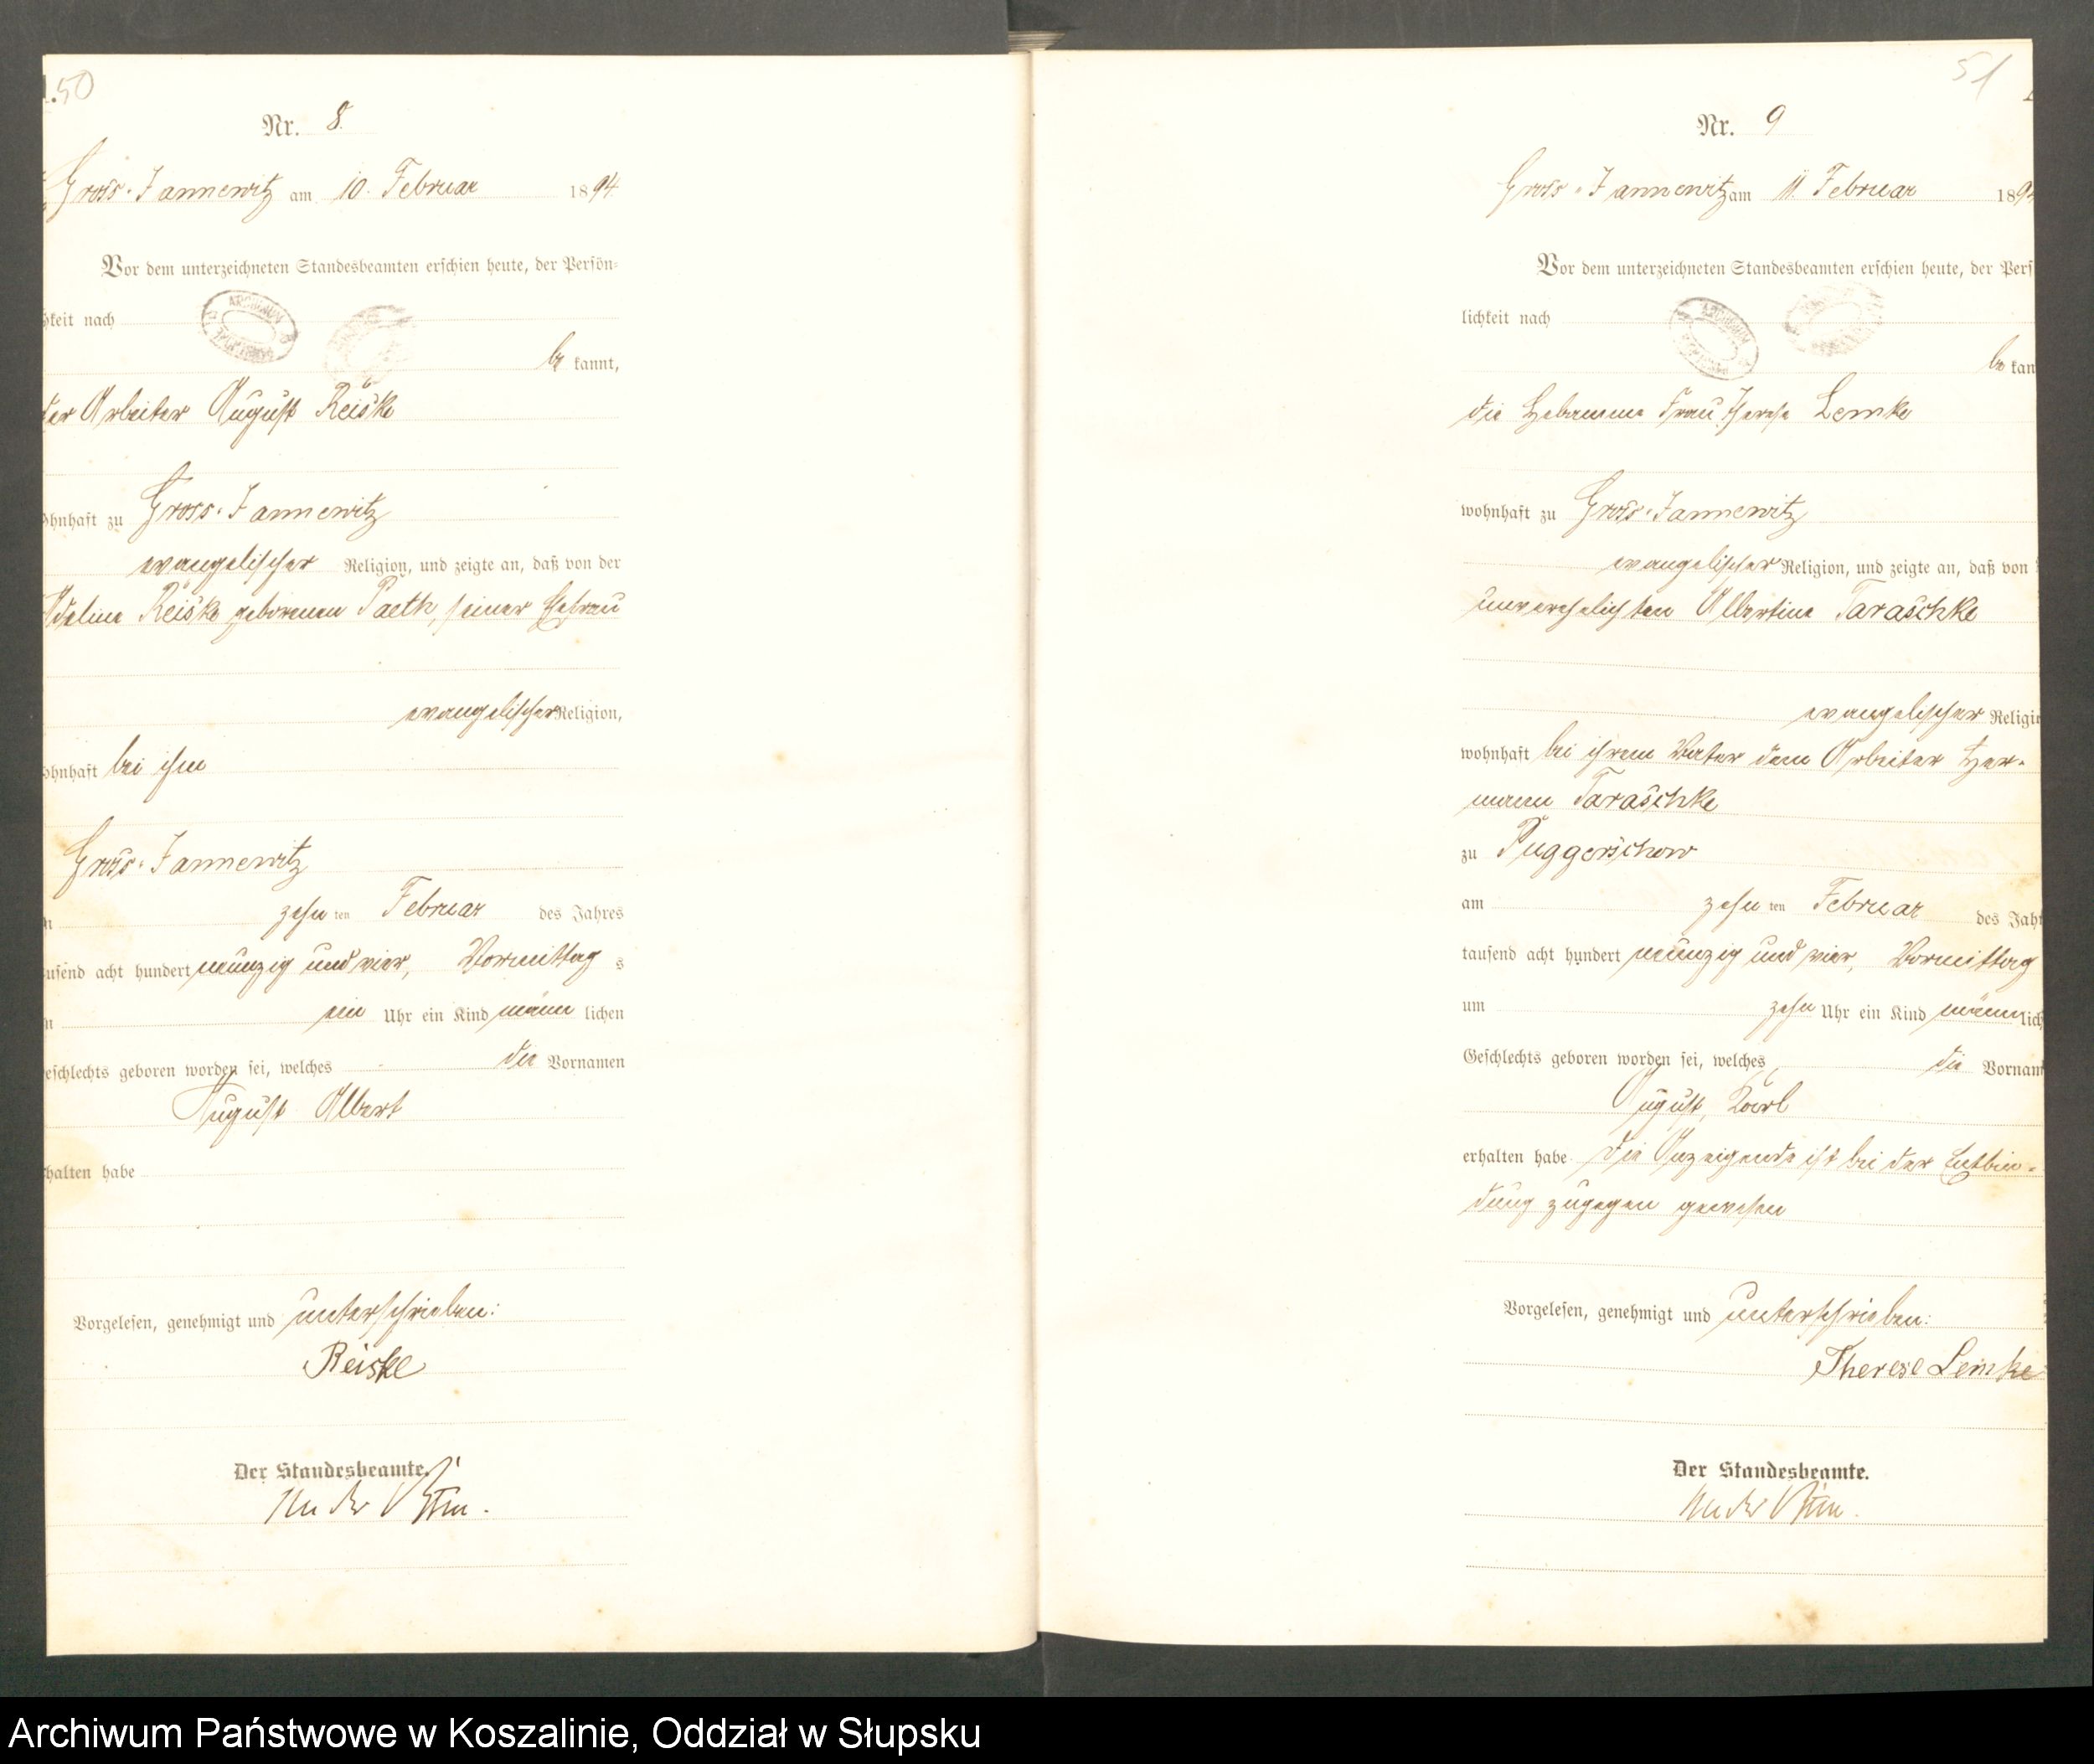 50
Nr. 8.
Gross-Jannewitz am 10. Februar 1894.
Vor dem unterzeichneten Standesbeamten erschien heute, der Persön-
hkeit nach
be kannt,
der Arbeiter August Reiske
ohnhaft zu Gross-Jannewitz
evangelischer Religion, und zeigte an, daß von der
Adeline Reiske geborenen Paeth, seiner Ehefrau
evangelischer Religion,
ohnhaft bei ihm
Gross-Jannewitz
zehn ten Februar des Jahres
usend acht hundert neunzig und vier, Vormittag s
ein Uhr ein Kind männ lichen
eschlechts geboren worden sei, welches die Vornamen
August Albert
halten habe
Vorgelesen, genehmigt und unterschrieben:
Reiske
Der Standesbeamte.
51
Nr. 9
Gross-Jannewitz am 11. Februar 189
Vor dem unterzeichneten Standesbeamten erschien heute, der Pers
lichkeit nach
be kan
die Hebamme Frau Therese Lemke
wohnhaft zu Gross-Jannewitz
evangelischer Religion, und zeigte an, daß von
unverehelichten Albertine Taraschke
evangelischer Religi
wohnhaft bei ihrem Vater dem Arbeiter Her-
mann Taraschke
zu Puggerschow
am zehn ten Februar des Jah
tausend acht hundert neunzig und vier, Vormittag
um zehn Uhr ein Kind männ lich
Geschlechts geboren worden sei, welches die Vornam
August, Karl
erhalten habe Die Anzeigende ist bei der Entbin-
dung zugegen gewesen
Vorgelesen, genehmigt und unterschrieben:
Therese Lemke
Der Standesbeamte.
Archiwum Państwowe w Koszalinie, Oddział w Słupsku